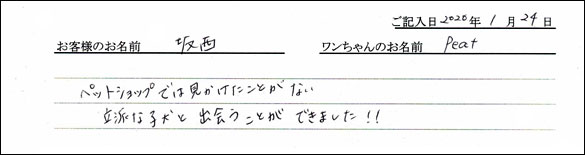 ご記入日2020年1月24日
お客様のお名前 坂西 ワンちゃんのお名前 Peat
ペットショップでは見かけたことがない
立派な子犬と出会うことができました!!